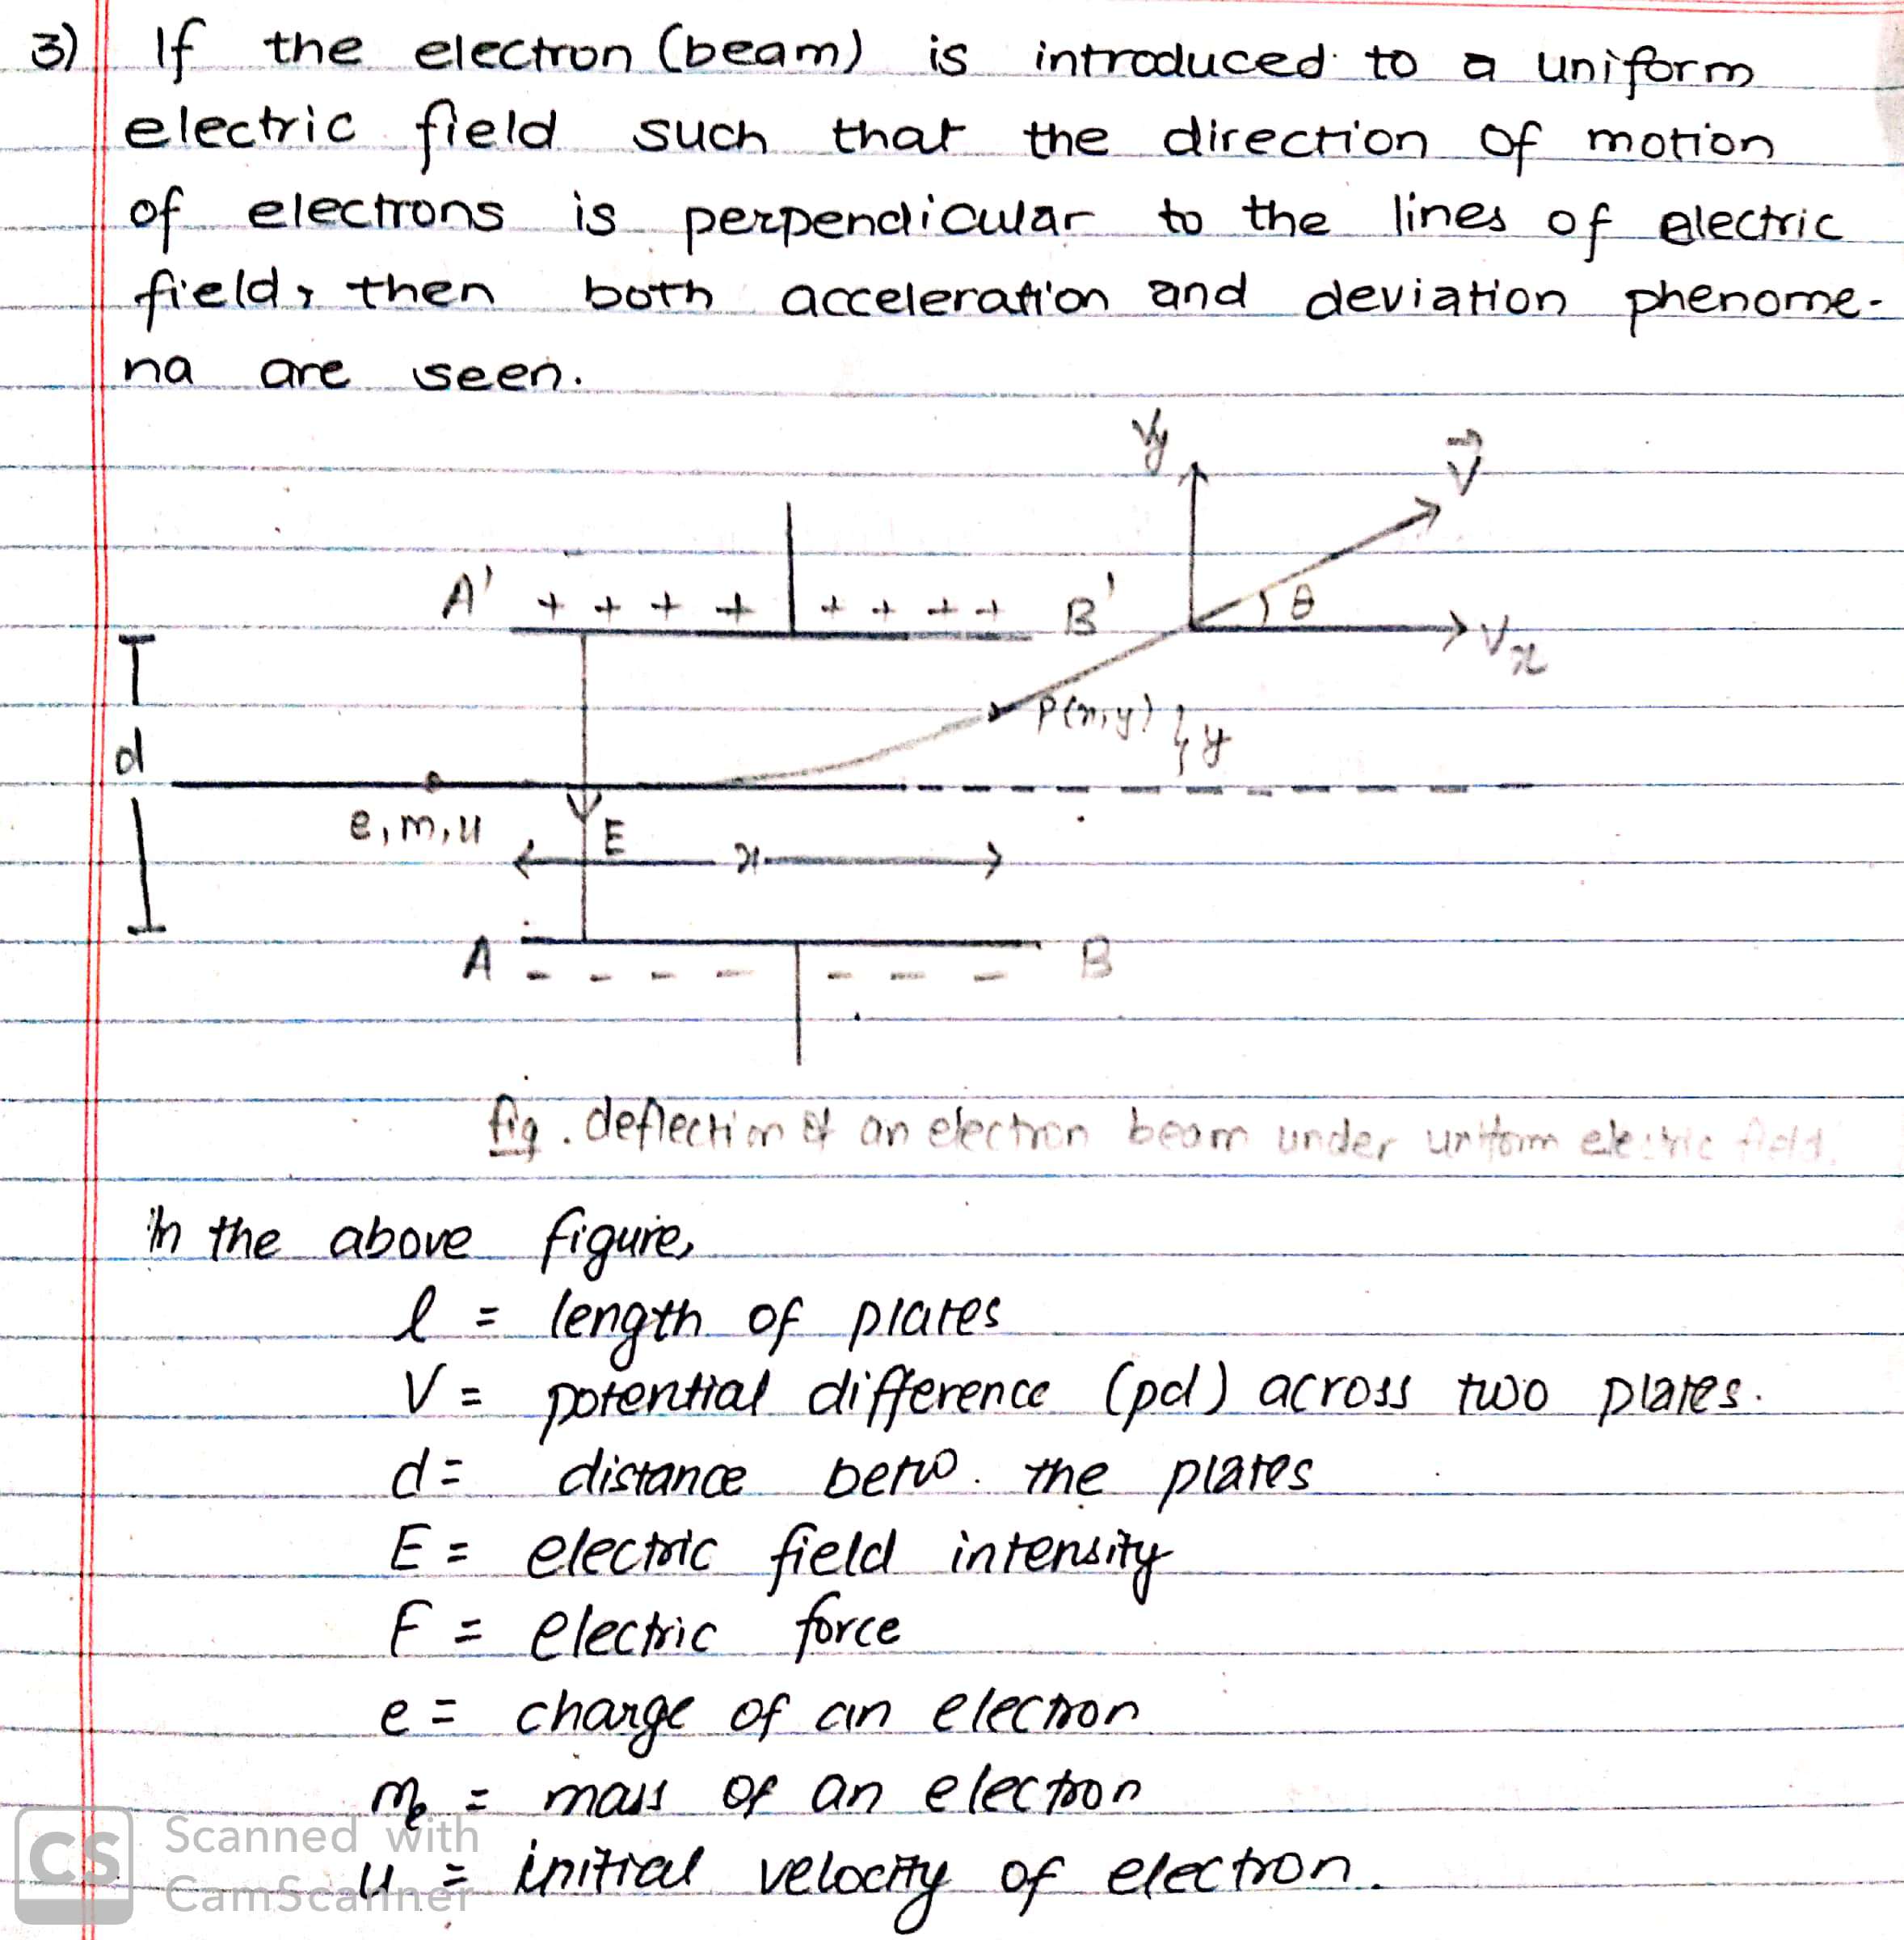 3) If the electron (beam) is introduced to a uniform
electric field such that the direction of motion
of electrons is perpendicular to the lines of electric
field, then both acceleration and deviation phenome-
na are seen.
Vy
V⃗
A' + + + + + + + + B'
θ
Vx
P(x,y) } y
d
e, m, u
E
x
A - - - - - - - B
fig. deflection of an electron beam under uniform electric field.
in the above figure,
l = length of plates
V = potential difference (pd) across two plates.
d = distance betw. the plates
E = electric field intensity
F = electric force
e = charge of an electron
me = mass of an electron
u = initial velocity of electron.
CS Scanned with
CamScanner